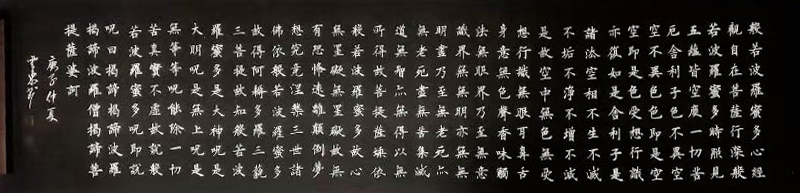 般若波羅蜜多心經
觀自在菩薩行深般
若波羅蜜多時照見
五蘊皆空度一切苦
厄舍利子色不異空
空不異色色即是空
空即是色受想行識
亦復如是舍利子是
諸法空相不生不滅
不垢不淨不增不減
是故空中無色無受
想行識無眼耳鼻舌
身意無色聲香味觸
法無眼界乃至無意
識界無無明亦無無
明盡乃至無老死亦
無老死盡無苦集滅
道無智亦無得以無
所得故菩提薩埵依
般若波羅蜜多故心
無罣礙無罣礙故無
有恐怖遠離顛倒夢
想究竟涅槃三世諸
佛依般若波羅蜜多
故得阿耨多羅三藐
三菩提故知般若波
羅蜜多是大神呪是
大明呪是無上呪是
無等等呪能除一切
苦真實不虛故說般
若波羅蜜多呪即說
呪曰揭諦揭諦波羅
揭諦波羅僧揭諦菩
提薩婆訶
庚子仲夏